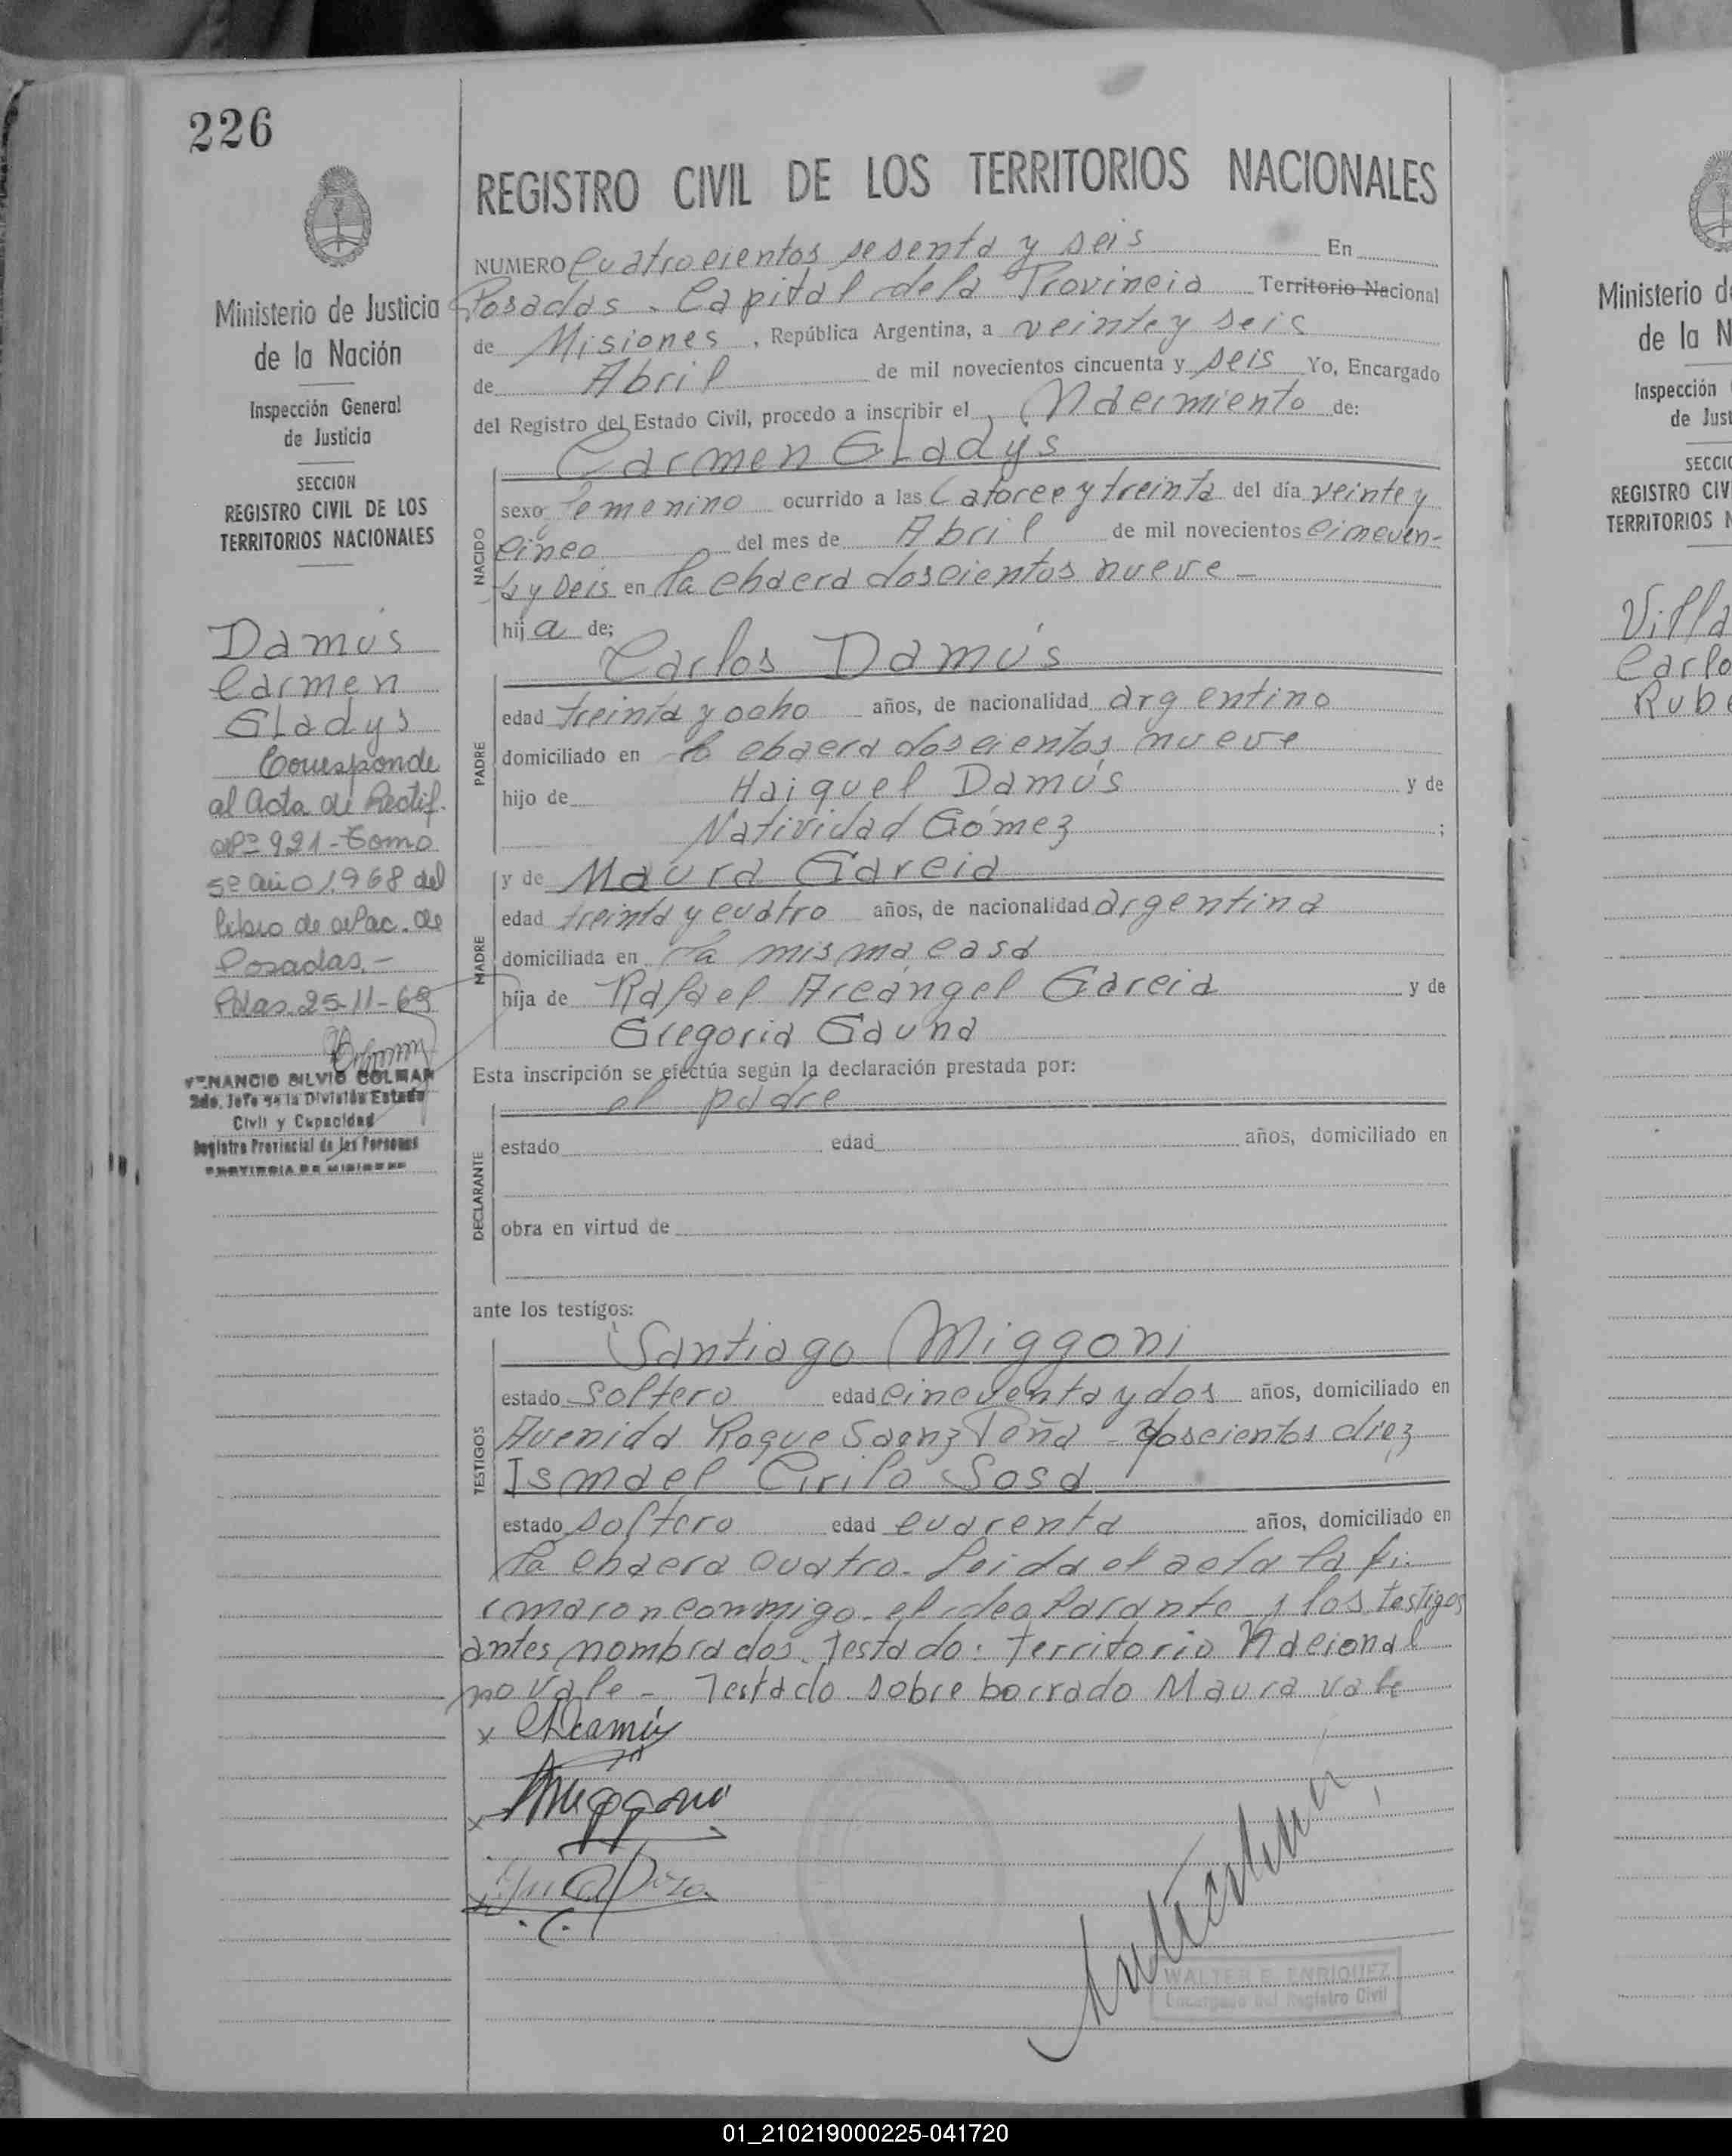 226
REGISTRO CIVIL DE LOS TERRITORIOS NACIONALES
NUMERO Cuatrocientos sesenta y seis En
Posadas. Capital de la Provincia Territorio Nacional
de Misiones, República Argentina, a veinte y seis
de Abril de mil novecientos cincuenta y seis Yo, Encargado
del Registro del Estado Civil, procedo a inscribir el Nacimiento de:
Carmen Gladys
NACIDO
sexo femenino ocurrido a las Catorce y treinta del día veinte y
cinco del mes de Abril de mil novecientos cincuen-
ta y seis en la chacra doscientos nueve -
hija de;
Carlos Damús
PADRE
edad treinta y ocho años, de nacionalidad argentino
domiciliado en la chacra doscientos nueve
hijo de Haiquel Damús y de
Natividad Gómez ;
y de Maura Garcia
MADRE
edad treinta y cuatro años, de nacionalidad argentina
domiciliada en la misma casa
hija de Rafael Arcángel Garcia y de
Gregoria Gauna
Esta inscripción se efectúa según la declaración prestada por:
el padre
DECLARANTE
estado edad años, domiciliado en
obra en virtud de
ante los testigos:
Santiago Miggoni
TESTIGOS
estado soltero edad cincuenta y dos años, domiciliado en
Avenida Roque Saenz Peña - doscientos diez
Ismael Cirilo Sosa
estado soltero edad cuarenta años, domiciliado en
la chacra cuatro. Leida el acta la fi-
rmaron conmigo. el declarante y los testigos
antes nombrados. Testado: territorio Nacional
no vale - Testado sobre borrado Maura vale
x CDamús
x Miggoni
x
WALTER E. ENRIQUEZ
Encargado del Registro Civil
Ministerio de Justicia
de la Nación
Inspección General
de Justicia
SECCION
REGISTRO CIVIL DE LOS
TERRITORIOS NACIONALES
Damús
Carmen
Gladys
Corresponde
al Acta de Rectif.
Nº 921 - Tomo
5º año 1968 del
libro de Nac. de
Posadas.-
Pdas. 25-11-69
VENANCIO SILVIO COLMAN
2do. Jefe de la División Estado
Civil y Capacidad
Registro Provincial de las Personas
PROVINCIA DE MISIONES
Ministerio d
de la N
Inspección
de Just
SECCIO
REGISTRO CIV
TERRITORIOS N
Villa
Carlo
Rube
01_210219000225-041720